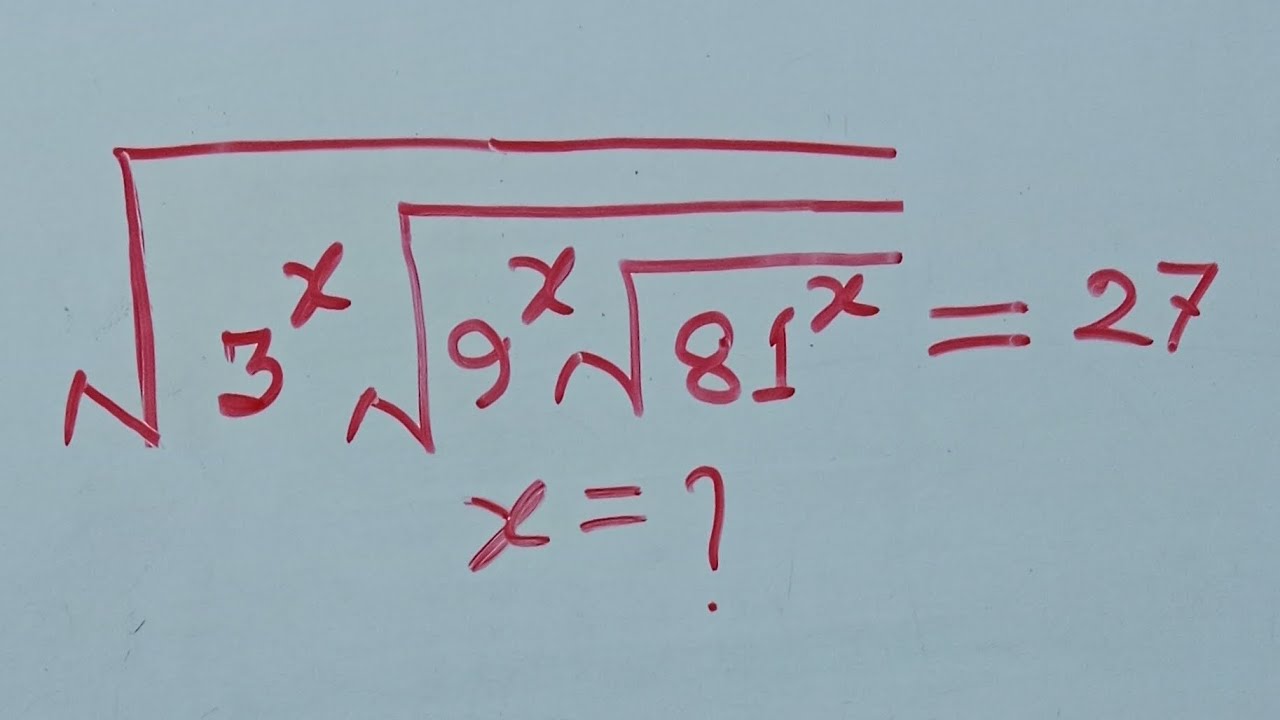 √(3^x √(9^x √(81^x))) = 27
x = ?